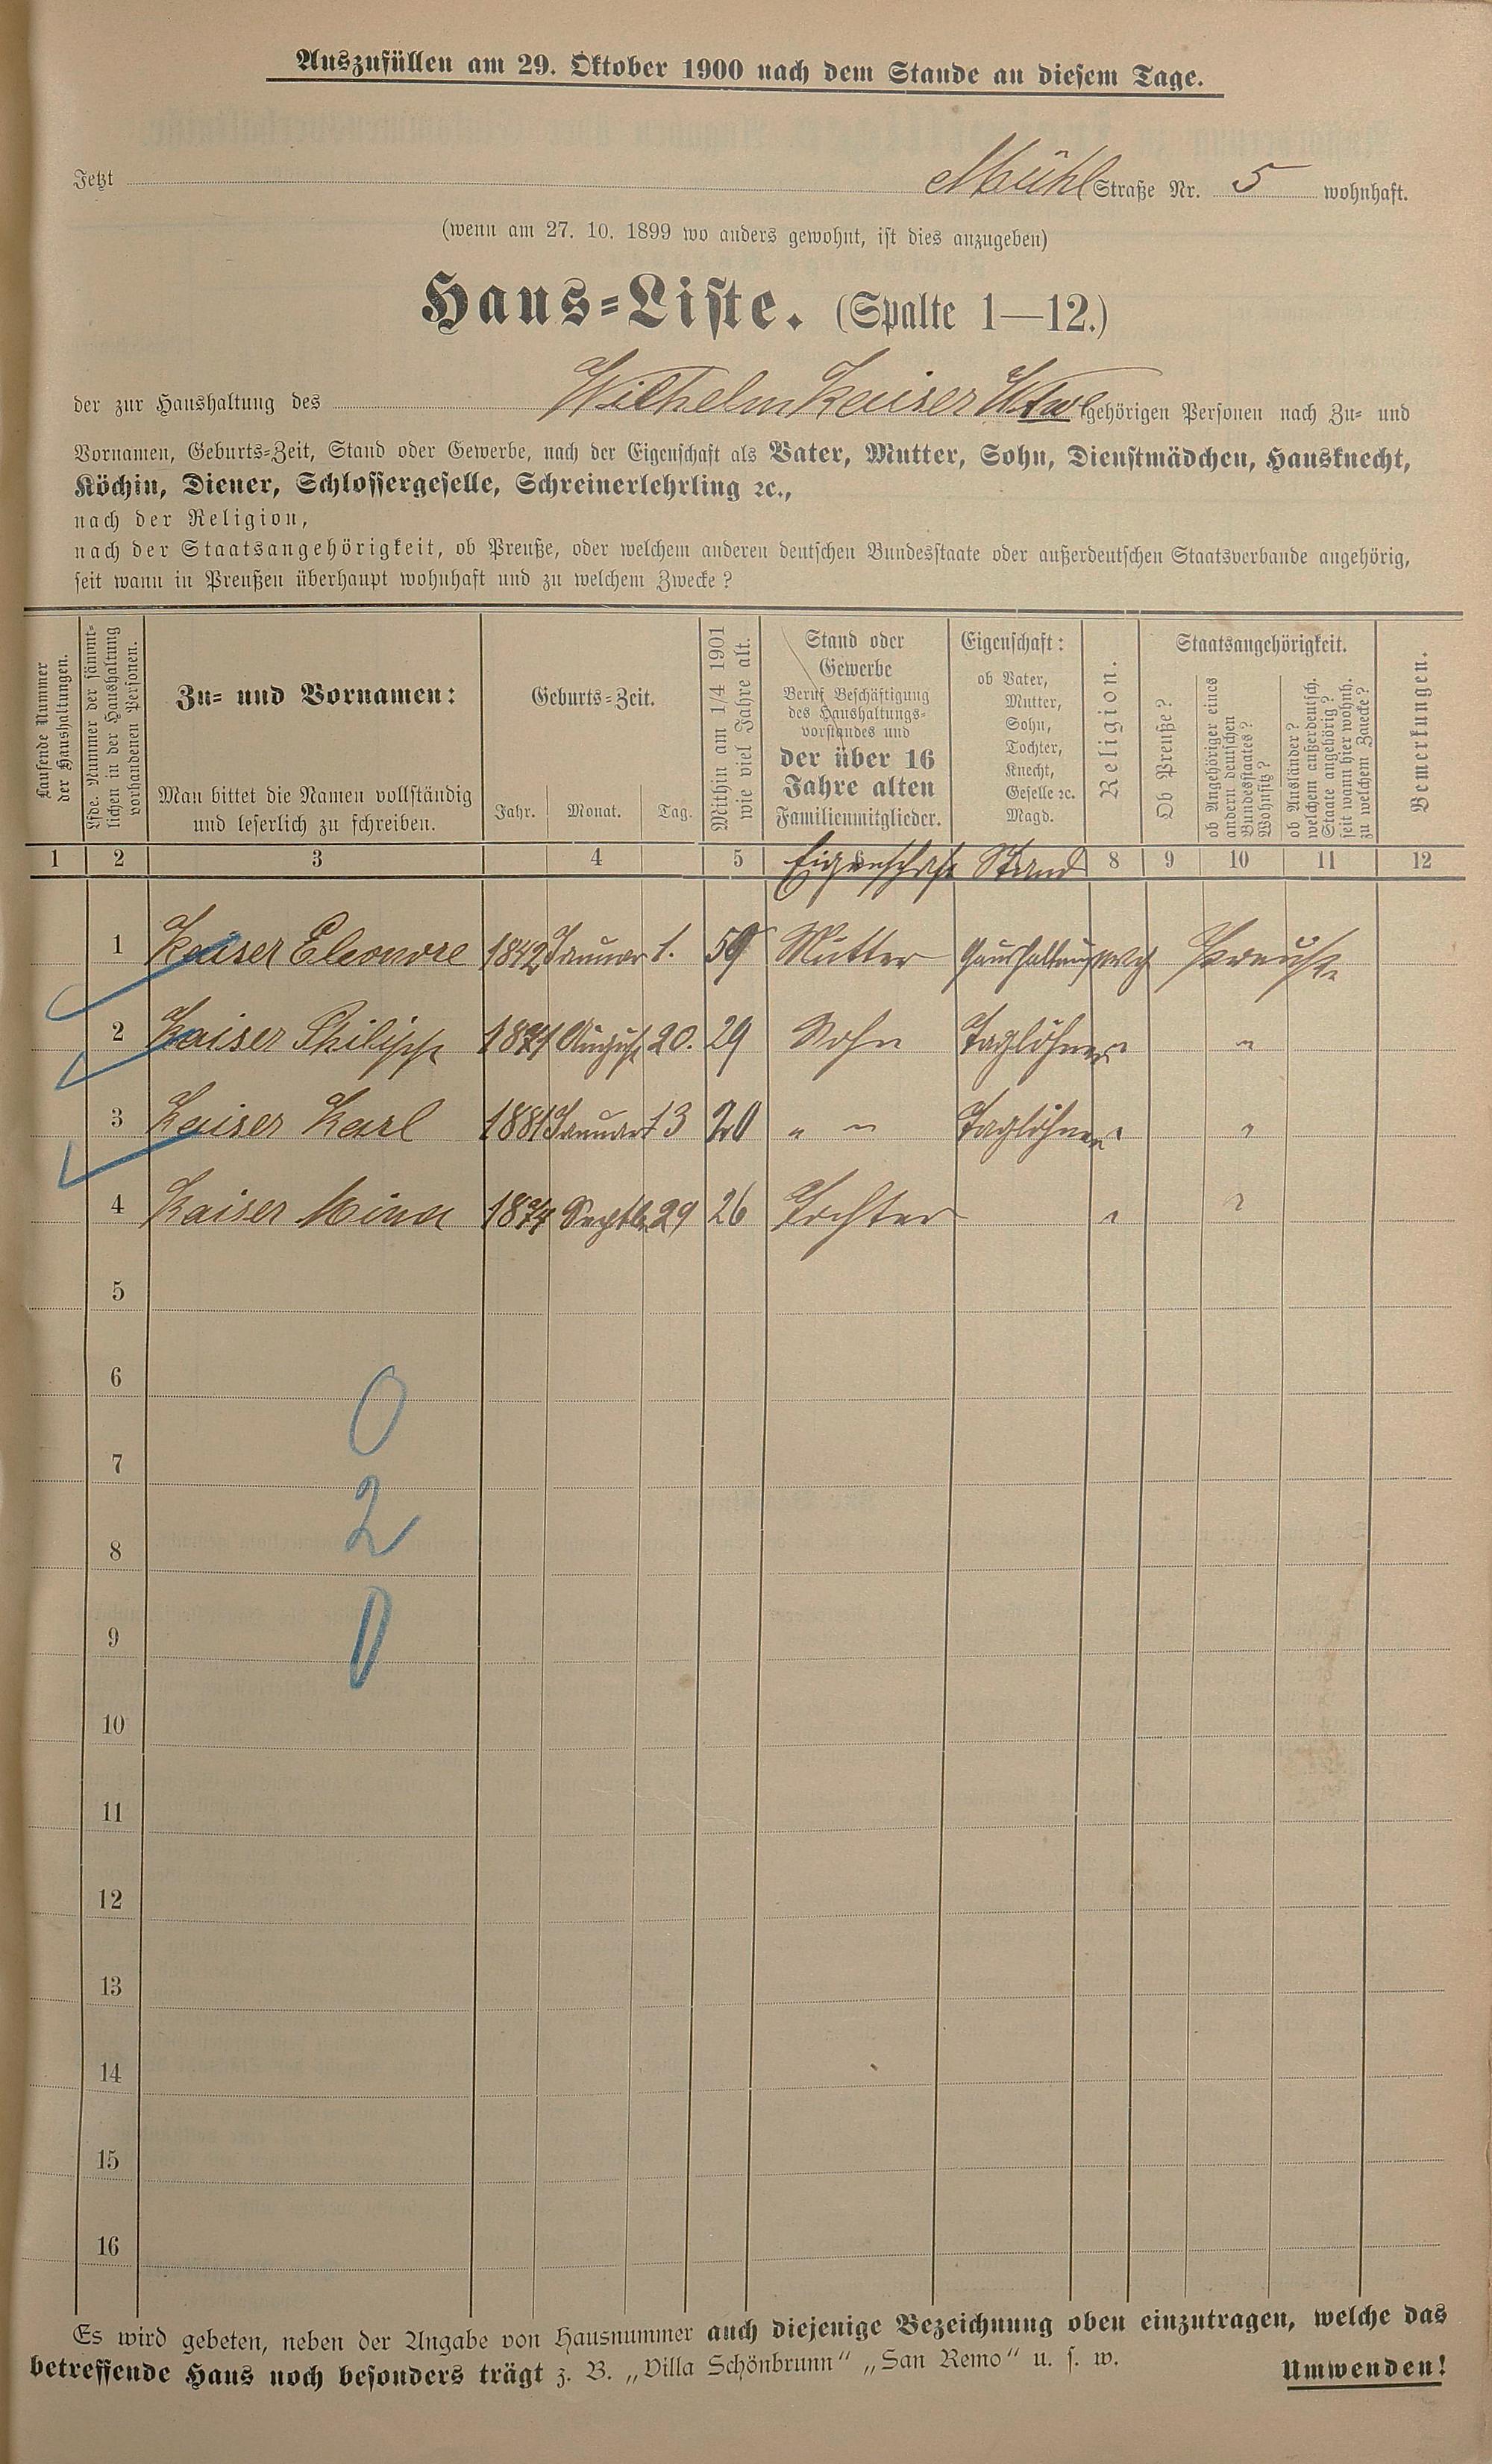 Auszufüllen am 29. Oktober 1900 nach dem Stande an diesem Tage.
Jetzt Mühl Straße Nr. 5 wohnhaft.
(wenn am 27. 10. 1899 wo anders gewohnt, ist dies anzugeben)
Haus-Liste. (Spalte 1—12.)
der zur Haushaltung des Wilhelm Kaiser Wtwe gehörigen Personen nach Zu- und
Vornamen, Geburts-Zeit, Stand oder Gewerbe, nach der Eigenschaft als Vater, Mutter, Sohn, Dienstmädchen, Hausknecht,
Köchin, Diener, Schlossergeselle, Schreinerlehrling ꝛc.,
nach der Religion,
nach der Staatsangehörigkeit, ob Preuße, oder welchem anderen deutschen Bundesstaate oder außerdeutschen Staatsverbande angehörig,
seit wann in Preußen überhaupt wohnhaft und zu welchem Zwecke?
Laufende Nummer
der Haushaltungen.
Lfde. Nummer der sämmt-
lichen in der Haushaltung
vorhandenen Personen.
Zu- und Vornamen:
Man bittet die Namen vollständig
und leserlich zu schreiben.
Geburts-Zeit.
Jahr. Monat. Tag.
Mithin am 1/4 1901
wie viel Jahre alt.
Stand oder
Gewerbe
Beruf, Beschäftigung
des Haushaltungs-
vorstandes und
der über 16
Jahre alten
Familienmitglieder.
Eigenschaft:
ob Vater,
Mutter,
Sohn,
Tochter,
Knecht,
Geselle ꝛc.
Magd.
Religion.
Staatsangehörigkeit.
Ob Preuße?
ob Angehöriger eines
andern deutschen
Bundesstaates?
Wohnsitz?
ob Ausländer?
welchem außerdeutsch.
Staate angehörig?
seit wann hier wohnh.
zu welchem Zwecke?
Bemerkungen.
1 2 3 4 5 Eigenschaft Stand 8 9 10 11 12
1 Kaiser Eleonore 1842 Januar 1. 59 Mutter Haushaltung evg Preuße
2 Kaiser Philipp 1871 August 20. 29 Sohn Taglöhner " "
3 Kaiser Karl 1881 Januar 13 20 " " Taglöhner " "
4 Kaiser Mina 1874 Septb. 29 26 Tochter " "
5
6
0
7
2
8
9
0
10
11
12
13
14
15
16
Es wird gebeten, neben der Angabe von Hausnummer auch diejenige Bezeichnung oben einzutragen, welche das
betreffende Haus noch besonders trägt z. B. „Villa Schönbrunn“ „San Remo“ u. s. w. Umwenden!